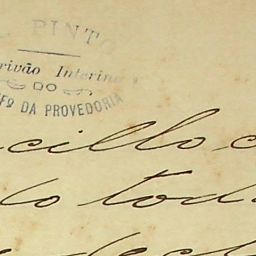 PINTO
rivão Interino
DO
Fº DA PROVEDORIA
cillo c
lo tod